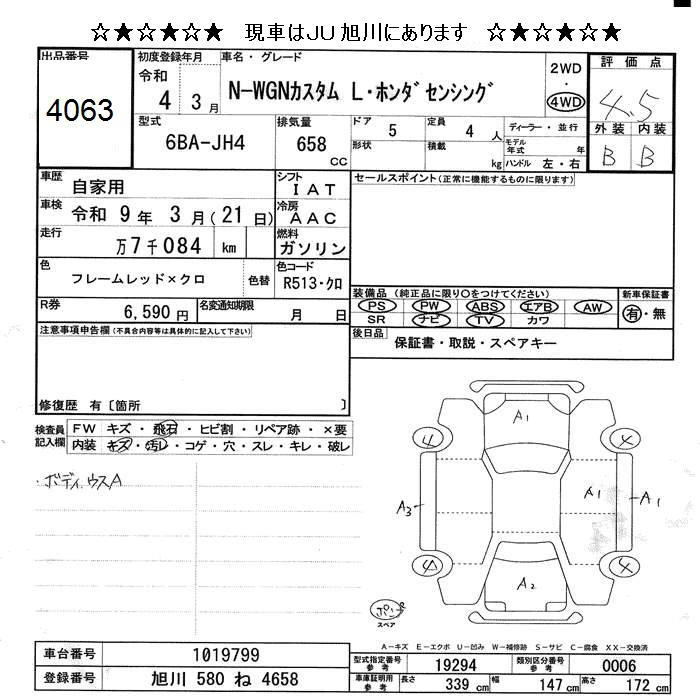 ☆★☆★☆★☆ 現車はJU旭川にあります ☆★☆★☆★☆
出品番号
4063
初度登録年月
令和
4 3月
車名・グレード
N-WGNカスタム L・ホンダセンシング
2WD
・
4WD
評価点
4.5
外装 内装
B B
型式
6BA-JH4
排気量
658
cc
ドア
5
定員
4 人
形状
積載
kg
ディーラー・並行
モデル年式 年
ハンドル 左・右
車歴
自家用
車検
令和 9年 3月(21日)
走行
万7千084 km
シフト
IAT
冷房
AAC
燃料
ガソリン
色
フレームレッド×クロ
色替
色コード
R513・クロ
R券
6,590円
名変通知期限
月 日
セールスポイント(正常に機能するものに限ります)
装備品 (純正品に限り○をつけてください)
PS PW ABS エアB AW
SR ナビ TV カワ
新車保証書
有・無
後日品
保証書・取説・スペアキー
注意事項申告欄(不具合内容等は具体的に記入して下さい)
修復歴 有〔箇所 〕
検査員記入欄
FW キズ・飛石・ヒビ割・リペア跡・×要
内装 キズ・汚レ・コゲ・穴・スレ・キレ・破レ
・ボディウスA
A1
4
4
A3
A1
A1
4
4
A2
パンク
スペア
A-キズ E-エクボ U-凹み W-補修跡 S-サビ C-腐食 XX-交換済
車台番号
1019799
登録番号
旭川 580 ね 4658
型式指定番号
参考
19294
類別区分番号
参考
0006
車庫証明用
参考
長さ
339 cm
幅
147 cm
高さ
172 cm